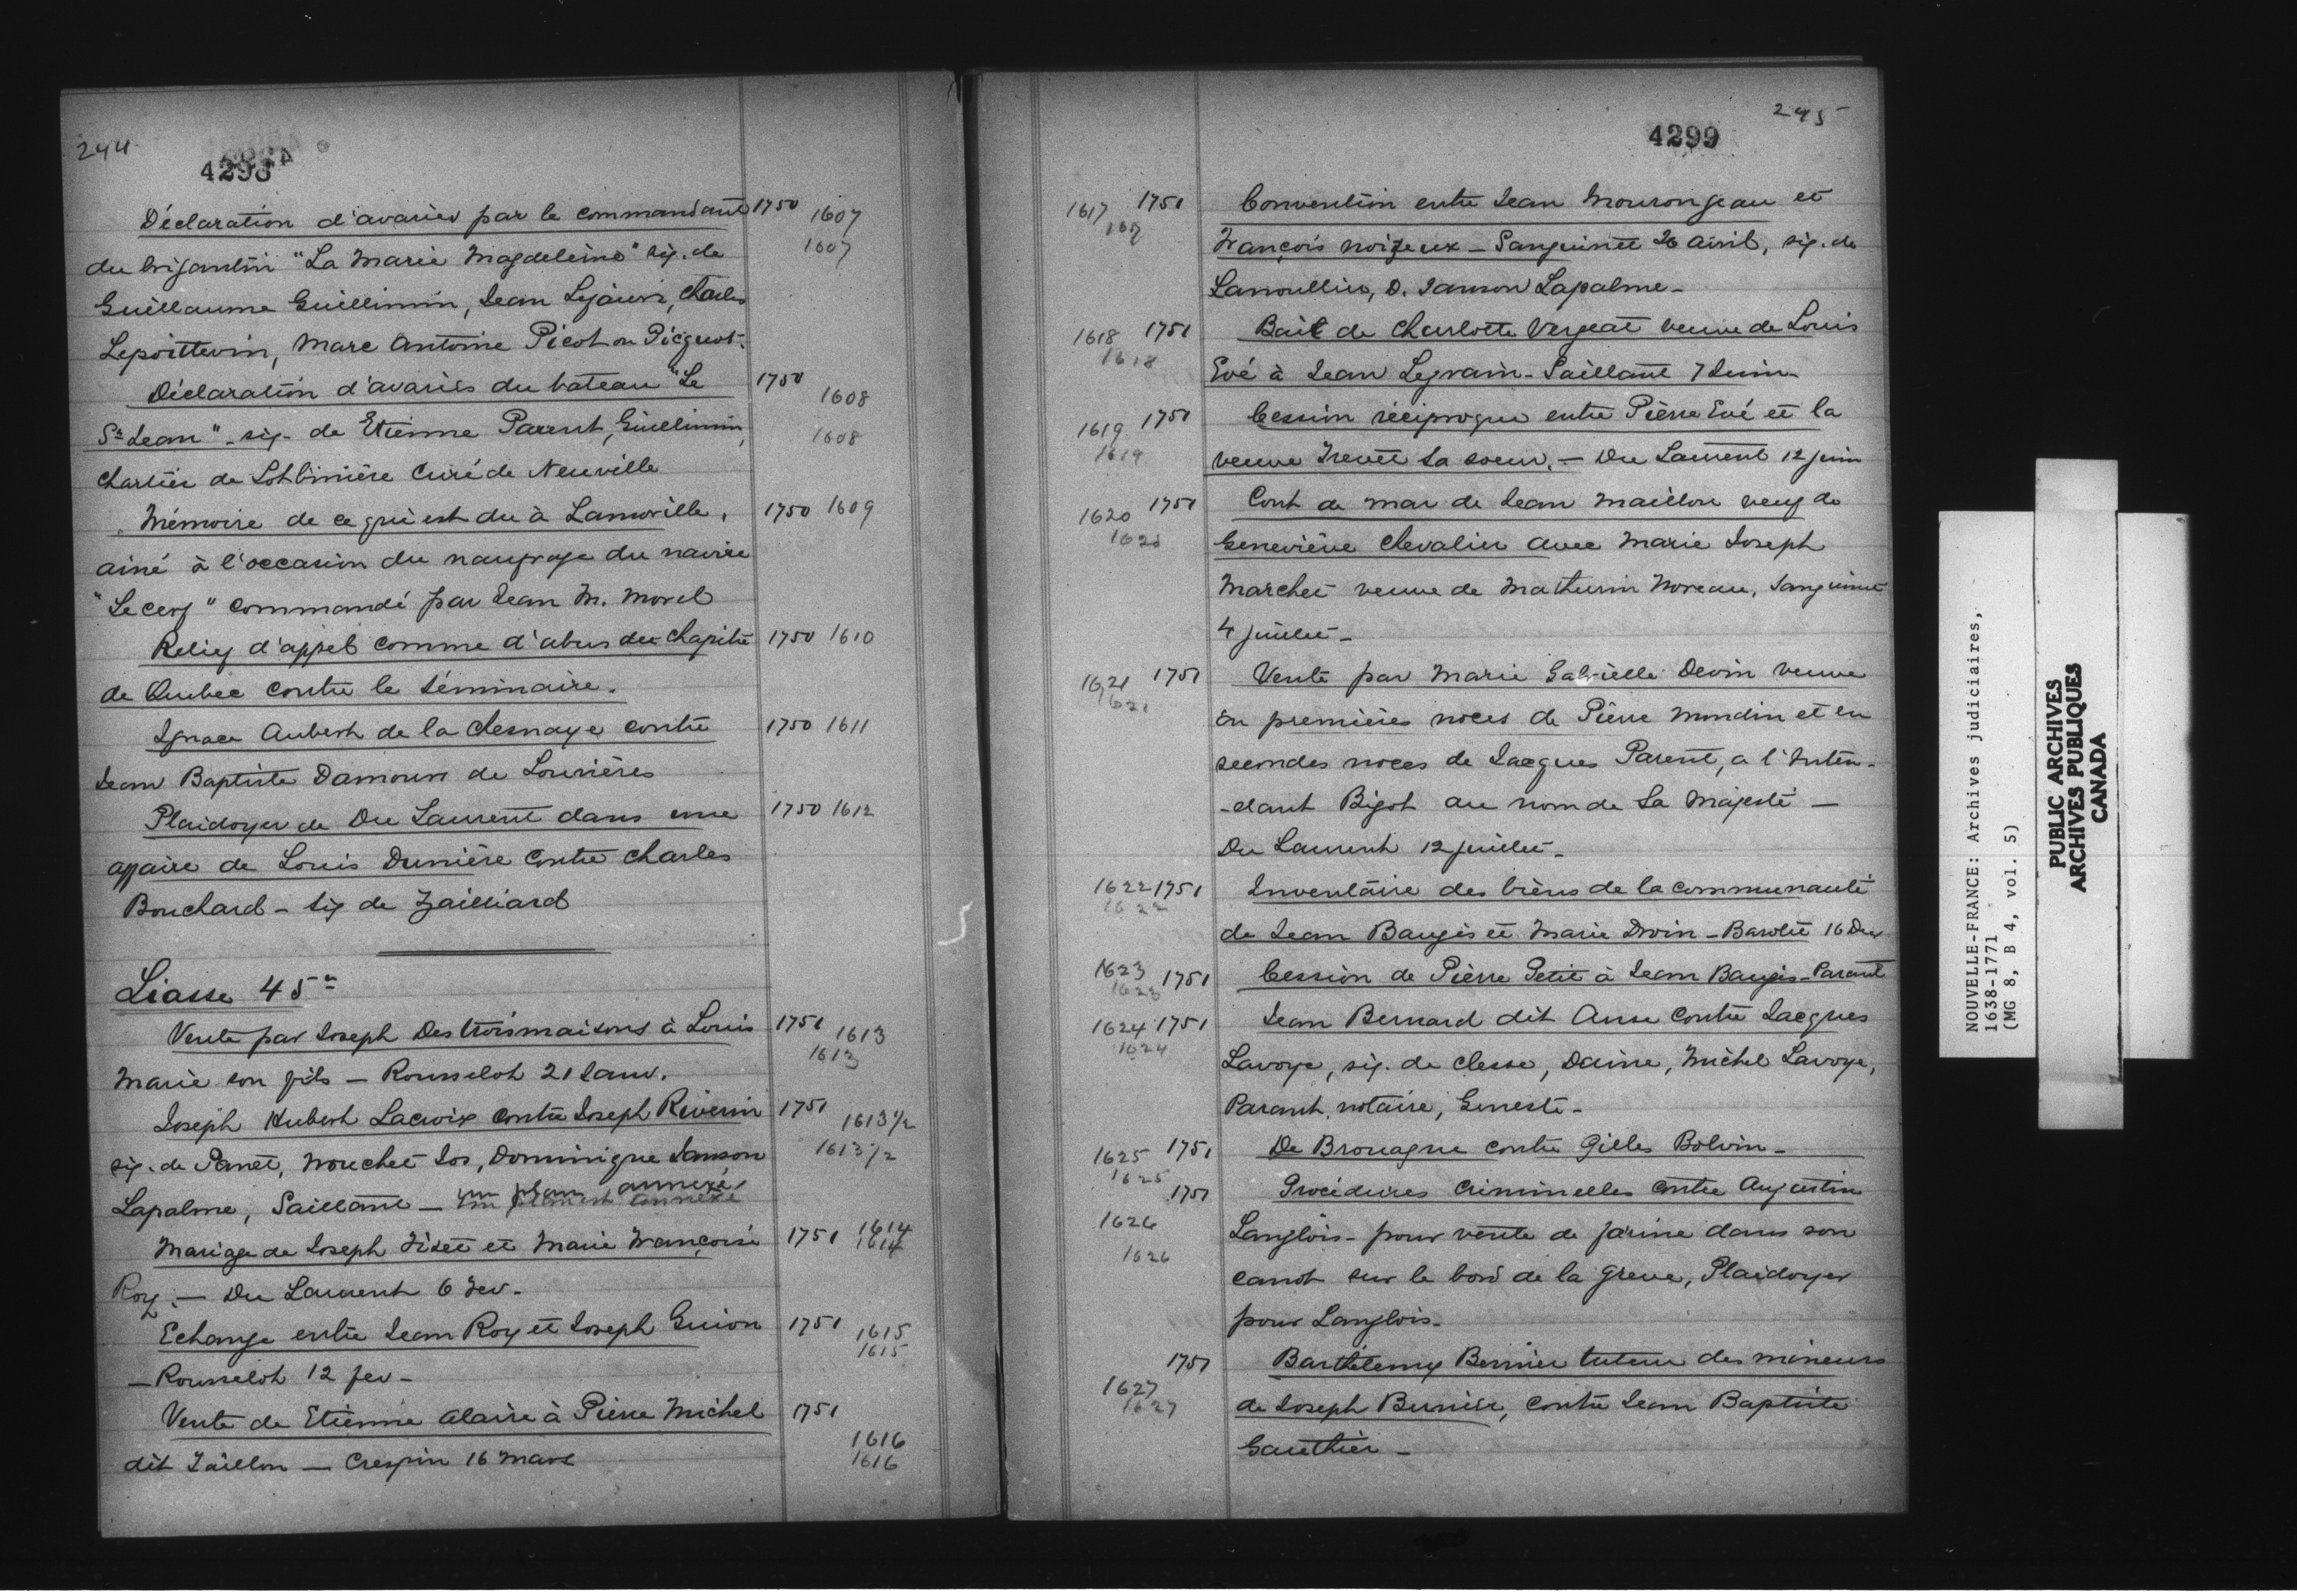 244
4298
Déclaration d'avaries par le commandant 1750 1607
1607
du brigantin "La Marie Magdeleine" sig. de
Guillaume Guillimin, Jean Lejeune, Charles
Lepoittevin, Marc Antoine Picot ou Picquot.
Déclaration d'avaries du bateau "Le 1750 1608
St Jean" - sig. de Etienne Parent, Guillimin, 1608
Chartier de Lotbinière Curé de Neuville
Mémoire de ce qui est du à Lanoville, 1750 1609
ainé à l'occasion du naufrage du navire
"Le cerf" commandé par Jean M. Morel
Relief d'appel comme d'abus du Chapitre 1750 1610
de Quebec contre le Séminaire.
Ignace Aubert de la Chesnaye contre 1750 1611
Jean Baptiste Damours de Louvières
Plaidoyer de Du Laurent dans une 1750 1612
affaire de Louis Dunière contre Charles
Bouchard - sig de Gailliard
Liasse 45e
Vente par Joseph Destroismaisons à Louis 1751 1613
1613
Marie son fils - Rousselot 21 Janv.
Joseph Hubert Lacroix contre Joseph Riverin 1751 1613 1/2
sig. de Panet, Nouchet Jos, Dominique Janson 1613 1/2
Lapalme, Saillant - un plan est annexé
Mariage de Joseph Fiset et Marie Françoise 1751 1614
1614
Roy. - Du Laurent 6 Fev.
Echange entre Jean Roy et Joseph Guion 1751 1615
1615
- Rousselot 12 fev -
Vente de Etienne Alaire à Pierre Michel 1751
1616
dit Taillon - Crespin 16 mars 1616
245
4299
1617 1751 Convention entre Jean Mourongeau et
1617
François Noizeux - Sanguinet 26 Avril, sig. de
Lanoullier, D. Janson Lapalme -
1618 1751 Bail de Charlotte Vergeat veuve de Louis
1618
Evé à Jean Legrain - Saillant 7 Juin -
1619 1751 Cession réciproque entre Pierre Evé et la
1619
veuve Trevet sa soeur. - Du Laurent 12 juin
1620 1751 Cont de mar de Jean Maillou veuf de
1620
Geneviève Chevalier avec Marie Joseph
Marchet veuve de Mathurin Moreau, Sanguinet
4 juillet -
1621 1751 Vente par Marie Gabrielle Devin veuve
1621
en premières noces de Pierre Mondin et en
secondes noces de Jacques Parent, a l'Inten-
-dant Bigot au nom de Sa Majesté -
Du Laurent 12 juillet -
1622 1751 Inventaire des biens de la communauté
1622
de Jean Baugis et Marie Droin - Barolet 16 Dec
1623 1751 Cession de Pierre Petit à Jean Baugis - Parant
1623
1624 1751 Jean Bernard dit Anse contre Jacques
1624
Lavoye, sig. de Clesse, Daine, Michel Lavoye,
Parant, notaire, Geneste -
1625 1751 De Brouague contre Gilles Bolvin -
1625
1751 Procédures criminelles contre Augustin
1626
Langlois - pour vente de farine dans son
1626
canot sur le bord de la greve, Plaidoyer
pour Langlois -
1751 Barthélemy Bernier tuteur des mineurs
1627
1627
de Joseph Bernier, contre Jean Baptiste
Gauthier -
NOUVELLE-FRANCE: Archives judiciaires,
1638-1771
(MG 8, B 4, vol. 5)
PUBLIC ARCHIVES
ARCHIVES PUBLIQUES
CANADA